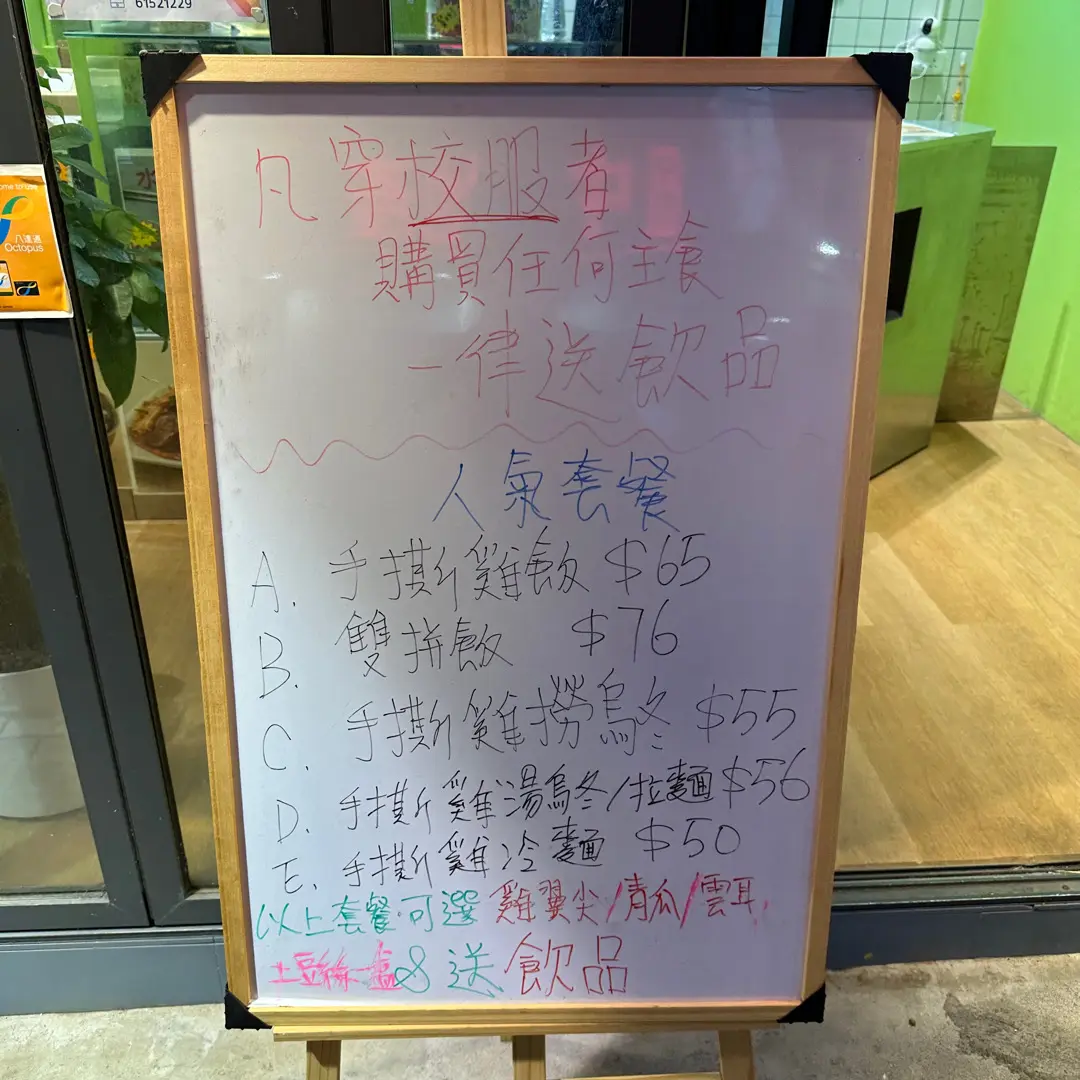 61521229
八達通
Octopus
水
凡穿校服者
購買任何主食
一律送飲品
人氣套餐
A. 手撕雞飯 $65
B. 雙拼飯 $76
C. 手撕雞撈烏冬 $55
D. 手撕雞湯烏冬/拉麵 $56
E. 手撕雞冷麵 $50
以上套餐可選 雞翼尖/青瓜/雲耳
土豆絲一盒 & 送飲品